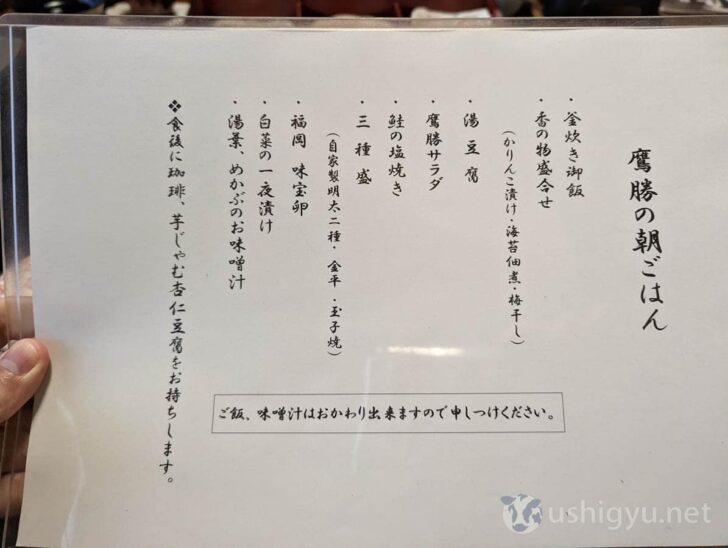 鷹勝の朝ごはん
・釜炊き御飯
・香の物盛合せ
(かりんこ漬け・海苔佃煮・梅干し)
・湯豆腐
・鷹勝サラダ
・鮭の塩焼き
・三種盛
(自家製明太二種・金平・玉子焼)
・福岡 味宝卵
・白菜の一夜漬け
・湯葉、めかぶのお味噌汁
❖食後に珈琲、芋じゃむ杏仁豆腐をお持ちします。
ご飯、味噌汁はおかわり出来ますので申しつけください。
ushigyu.net